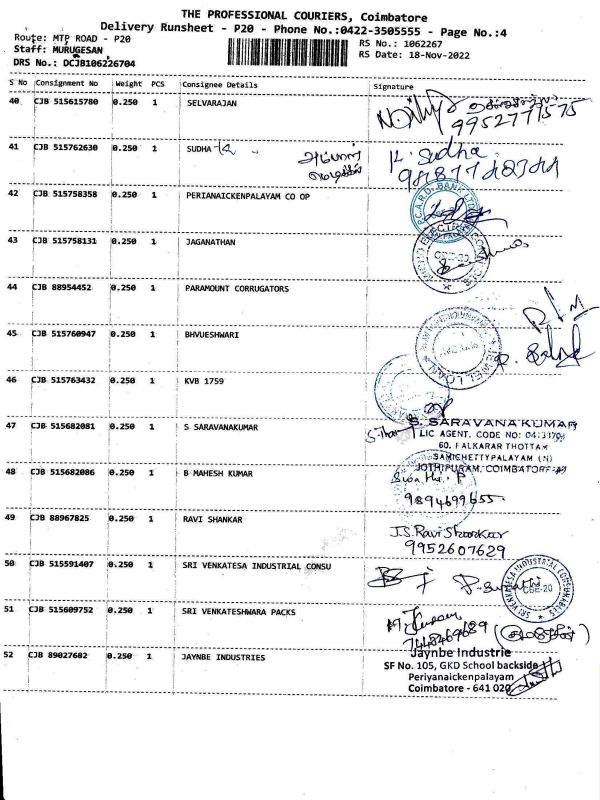 THE PROFESSIONAL COURIERS, Coimbatore
Delivery Runsheet - P20 - Phone No.:0422-3505555 - Page No.:4
Route: MTP ROAD - P20
RS No.: 1062267
Staff: MURUGESAN
RS Date: 18-Nov-2022
DRS No.: DCJB106226704
S No Consignment No Weight PCS Consignee Details Signature
40 CJB 515615780 0.250 1 SELVARAJAN
9952777575
41 CJB 515762630 0.250 1 SUDHA K. Sudha
42 CJB 515758358 0.250 1 PERIANAICKENPALAYAM CO OP
43 CJB 515758131 0.250 1 JAGANATHAN
44 CJB 88954452 0.250 1 PARAMOUNT CORRUGATORS
45 CJB 515760947 0.250 1 BHVUESHWARI
46 CJB 515763432 0.250 1 KVB 1759
47 CJB 515682081 0.250 1 S SARAVANAKUMAR
S. SARAVANAKUMAR
LIC AGENT. CODE NO:
60, FALKARAR THOTTAM
SAMICHETTYPALAYAM (N)
JOTHIPURAM, COIMBATORE
48 CJB 515682086 0.250 1 B MAHESH KUMAR
9894699655
49 CJB 88967825 0.250 1 RAVI SHANKAR J.S.Ravi Shankar
9952607629
50 CJB 515591407 0.250 1 SRI VENKATESA INDUSTRIAL CONSU
SRI VENKATESA INDUSTRIAL CONSUMABLES
CBE-20
51 CJB 515609752 0.250 1 SRI VENKATESHWARA PACKS
7448469689
52 CJB 89027682 0.250 1 JAYNBE INDUSTRIES
Jaynbe Industrie
SF No. 105, GKD School backside
Periyanaickenpalayam
Coimbatore - 641 020